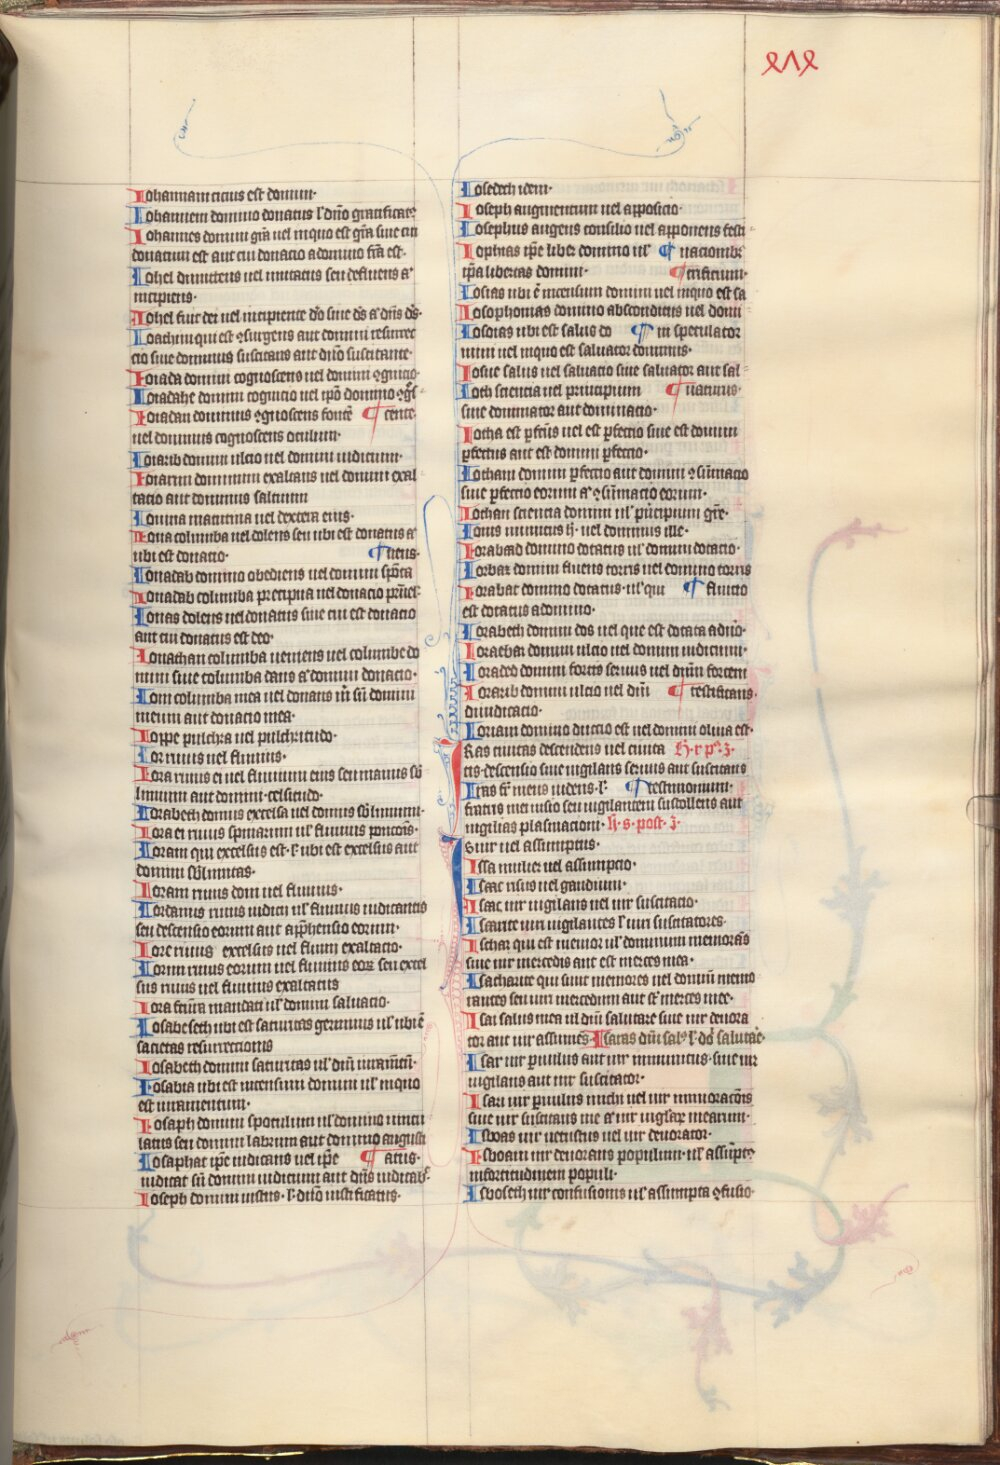 Iohannam cuius est domini·
Iohannem domino donatus l' dn̄o gratificat᷒
Iohannes domini gr̄a uel in quo est gr̄a siue cui
donatum est aut cui donacio a domino fc̄a est·
Iohel dimittens uel mutatus seu definens a᷒
incipiens·
Iohel fuit dei uel incipiente dō siue ds̄ a᷒ dn̄s ds̄·
Ioachim qui est ꝯsurgens aut domini resurrec
cio siue dominus suscitans aut dn̄o suscitante·
Ioiada domini cognoscens uel domini ꝯgnicio·
Ioiadahe domini cognicio uel ip̄o domino
Ioiadan dominus ꝯgnoscens fonte ¶ cente·
uel dominus cognoscens oculum·
Ioiarib domini ulcio uel domini iudicium·
Ioiarim dominum exaltans uel domini exal
tacio aut dominus
Ionina matutina uel dextera eius·
Iona columba uel dolens seu ubi est donatus a᷒
ubi est donatio· ¶ nens·
Ionadab domino obediens uel domini
Ionadab columba precipua uel donacio
Ionas dolens uel donatus siue cui est donacio
aut cui donatus est deo·
Ionathan columba ueniens uel columbe do
mini siue columba dans a᷒ domini donacio·
Iom columba mea uel donans domini
meum aut donacio mea·
Ioppe pulchra uel pulchritudo·
Ior riuus uel fluuius·
Iora riuus ei uel fluuium eius seu manus sb̄
limium aut domini celsitudo·
Iorabeth domus excelsa uel domus sb̄limium·
Iora ei riuus spinarum ul' fluuius
Ioram qui excelsus est· l' ubi est excelsus aut
domini sb̄limitas·
Ioram riuus dom uel fluuius·
Iordanus riuus iudicii ul' fluuius iudicantis
seu descensio eorum aut app̄hensio eorum·
Iore riuus excelsus uel fluuii exaltacio·
Iorim riuus eorum uel fluuius eoꝝ seu excel
sus riuus uel fluuius exaltatus
Iora mandati ul' domini saluacio·
Iosabeseth ubi est saturitas geruinus ul' ubi ē
sacietas resurrectionis
Iosabeth domini saturitas ul' dn̄i
Iosabia ubi est incensum domini ul' in quo
est iuramentum·
Iosaph domini speculum ul' domino uincu
latus seu domini labrum aut domino angusti
Iosaphat ip̄e iudicans uel ip̄e ¶ atus·
iudicat domini iudicium aut dn̄s iudicab᷒
Ioseph domini iustus· l' dn̄o iustificatus·
Iosedech idem·
Ioseph augmentum uel appositio·
Iosephus augens consilio uel apponens festi
Iophias ip̄e libe domino ul' ¶ nacionibꝫ
ip̄a libertas domini· ¶ crificium·
Iosias ubi ē incensum domini uel in quo est sa
Iosophonias domino absconditus uel domi
Iosoias ubi est salus do ¶ in speculator
mini uel in quo est saluator dominus·
Iosue salus uel saluacio siue saluator aut sal-
Ioth sciencia uel principium ¶ uaturus·
siue dominator aut dominacio·
Iotha est ꝑfc̄us uel est ꝑfectio siue est domini
ꝑfectus aut est domini ꝑfectio·
Iotham domini ꝑfectio aut domini ꝯsūmacio
siue ꝑfectio eorum a᷒ ꝯsūmacio eorum·
Iothan sciencia domini ul' principium
Iouis inimicus h̄· uel dominus ille·
Iorabad domino dotatus ul' domini dotacio·
Iorbar domini fluens torris uel domino torris
Iorabat domino dotatus· ul' qui ¶ fluuio
est dotatus a domino·
Iorabeth domini dos uel que est dotata a dn̄o·
Ioraebai domini ulcio uel domini iudicium·
Ioraded domini fortis seruus uel dn̄m fortem
Iorarib domini ulcio uel dn̄i ¶ testificans·
diiudicatio·
Ioriam domino directio est uel domini oliua est·
Iras ciuitas descendens uel ciuita H· r p᷒· ꝫ·
tis· descensio siue uigilans seruus aut suscitans
Iras fr̄ meus uidens· l'· ¶ testimonium·
fratris mei uisio seu uigilantem sustollens aut
uigilias plasmacioni· H· s· post· i·
Isuir uel assumptus·
Issa mulier uel assumpcio·
Isaac risus uel gaudium·
Isaac uir uigilans uel uir suscitacio·
Iscarite uiri uigilantes l' uiri suscitatores·
Ischar qui est memor ul' dominum memorās
siue uir mercedis aut est merces mea·
Isacharite qui sunt memores uel dominū memo
rantes seu uiri mercedum aut st̄ merces mee·
Isai salus mea ul' dn̄i salutare siue uir deuora
tor aut uir assumēs· Isaias dn̄i sal᷒· l' dō salutare·
Isar uir ꝑuulus aut uir inimicus· siue uir
uigilans aut uir suscitator·
Isari uir ꝑuulus michi uel uir
siue uir suscitans me a᷒ uir mearum·
Isboas uir uetustus uel uir deuorator·
Isboam uir deuorans populum· ul'
in fortitudinem populi·
Isboseth uir confusionis ul' assumpta ꝯfusio·